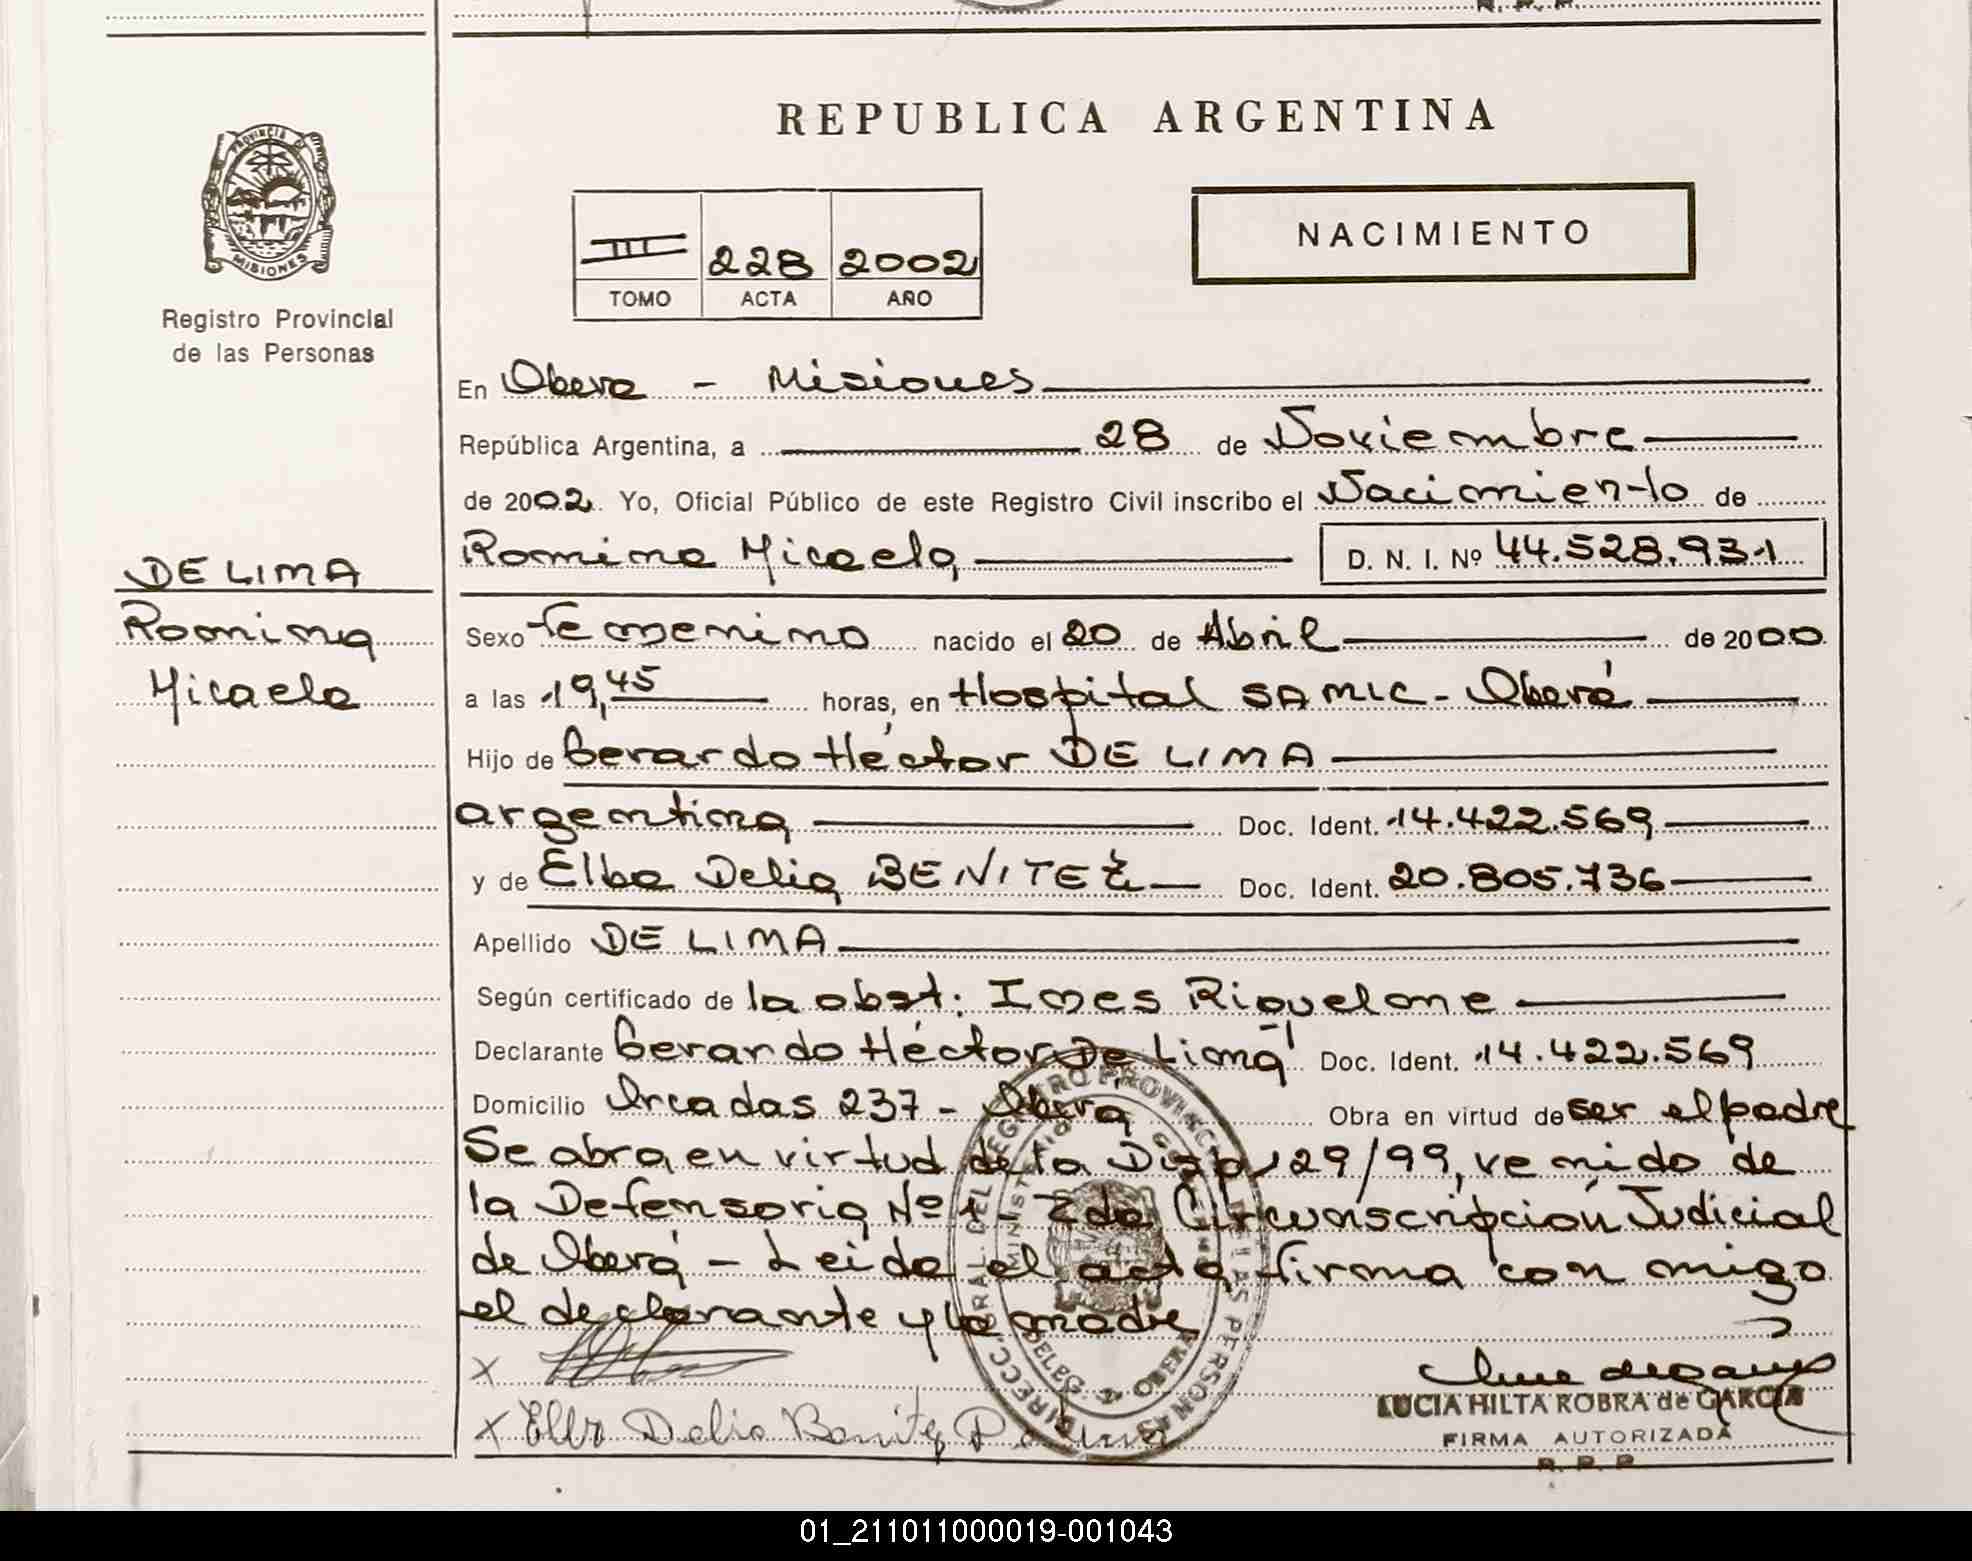 REPUBLICA ARGENTINA
PROVINCIA DE
MISIONES
Registro Provincial
de las Personas
III 228 2002
TOMO ACTA AÑO
NACIMIENTO
DE LIMA
Romina
Micaela
En Obera - Misiones
República Argentina, a 28 de Noviembre
de 2002. Yo, Oficial Público de este Registro Civil inscribo el Nacimiento de
Romina Micaela D. N. I. Nº 44.528.931
Sexo femenino nacido el 20 de Abril de 2000
a las 19,45 horas, en Hospital SAMIC - Oberá
Hijo de Gerardo Héctor DE LIMA
argentina Doc. Ident. 14.422.569
y de Elba Delia BENITEZ Doc. Ident. 20.805.736
Apellido DE LIMA
Según certificado de la obst: Ines Riquelme
Declarante Gerardo Héctor "De Lima" Doc. Ident. 14.422.569
Domicilio 237 - Obera Obra en virtud de ser el padre
Se obra en virtud de la Disp, 29/99, venido de
la Defensoria Nº 1 - 2da Circunscripción Judicial
de Oberá - Leida el acta, firma con migo
el declarante y la madre
X
X Elba Delia Benitez
LUCIA HILTA ROBRA de GARCIA
FIRMA AUTORIZADA
R. P. P.
01_211011000019-001043